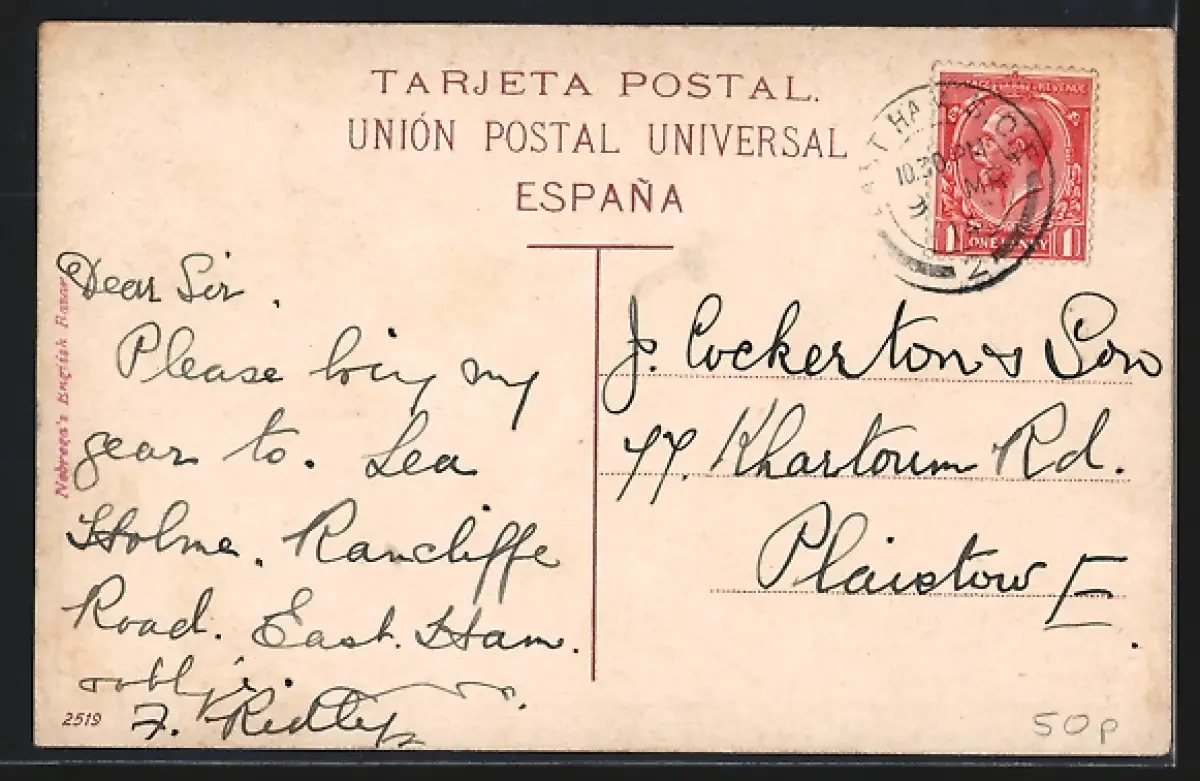 TARJETA POSTAL.
UNIÓN POSTAL UNIVERSAL
ESPAÑA
EAST HAM B.O.E
10.30 PM
MR
2
POSTAGE REVENUE
1 ONE PENNY 1
Dear Sir.
Please bring my
gear to. Lea
Holme. Rancliffe
Road. East. Ham.
oblige.
F. Ridley
J. Cockerton & Son
77. Khartoum Rd.
Plaistow E.
Nobrega's English Bazar
2519
50p